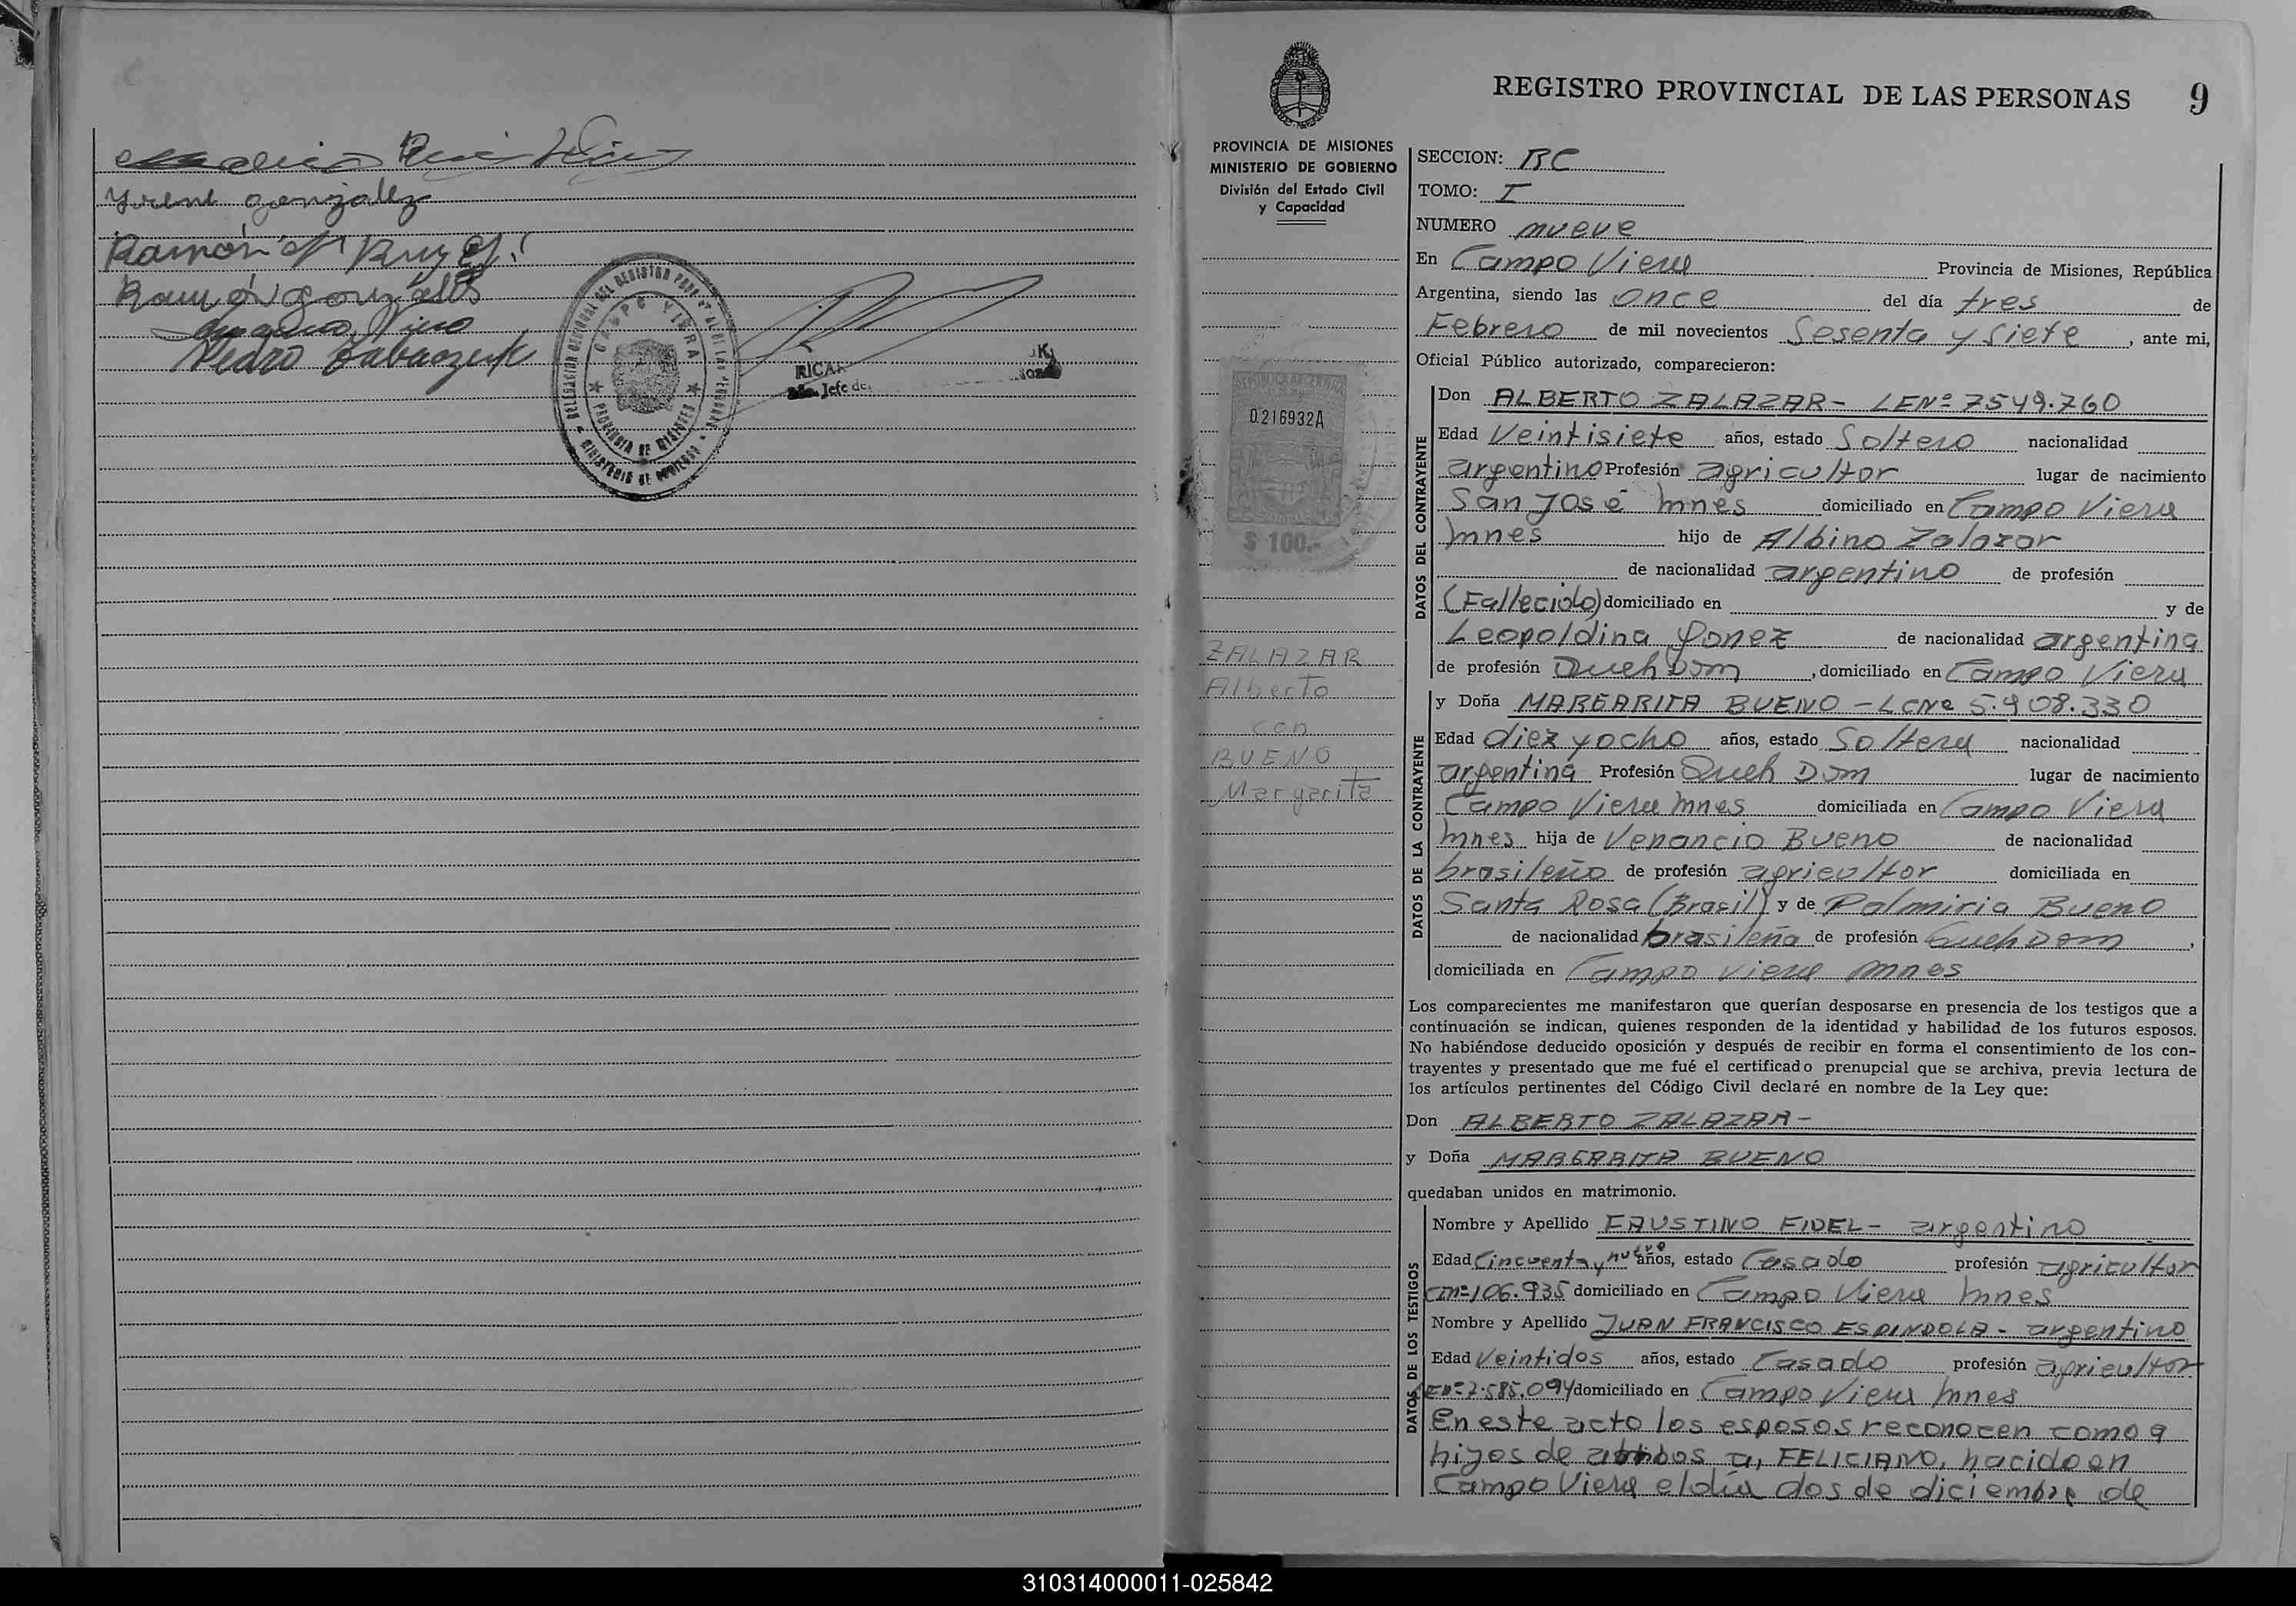 Yrene Gonzalez
Ramón
Ramón Gonzáles
Pedro
DELEGACION SECCIONAL DEL REGISTRO PROV. DE LAS PERSONAS
CAMPO VIERA
PROVINCIA DE MISIONES
MINISTERIO DE GOBIERNO
RICAR
Jefe de
REGISTRO PROVINCIAL DE LAS PERSONAS 9
PROVINCIA DE MISIONES
MINISTERIO DE GOBIERNO
División del Estado Civil
y Capacidad
REPUBLICA ARGENTINA
0.216932A
$ 100.-
ZALAZAR
Alberto
con
BUENO
Margarita
SECCION: RC
TOMO: I
NUMERO nueve
En Campo Viera Provincia de Misiones, República
Argentina, siendo las once del día tres de
Febrero de mil novecientos Sesenta y Siete, ante mi,
Oficial Público autorizado, comparecieron:
DATOS DEL CONTRAYENTE
Don ALBERTO ZALAZAR- LENº 7549.760
Edad Veintisiete años, estado Soltero nacionalidad
argentino Profesión agricultor lugar de nacimiento
San José Mnes domiciliado en Campo Viera
Mnes hijo de Albino Zalazar
de nacionalidad argentino de profesión
(Fallecido) domiciliado en y de
Leopoldina Gonez de nacionalidad argentina
de profesión Queh Dom, domiciliado en Campo Viera
DATOS DE LA CONTRAYENTE
y Doña MARGARITA BUENO - LCNº 5.908.330
Edad diez y ocho años, estado Soltera nacionalidad
argentina Profesión Queh Dom lugar de nacimiento
Campo Viera Mnes domiciliada en Campo Viera
Mnes hija de Venancio Bueno de nacionalidad
brasileño de profesión agricultor domiciliada en
Santa Rosa (Brasil) y de Palmiria Bueno
de nacionalidad brasileña de profesión Queh Dom,
domiciliada en Campo Viera Mnes
Los comparecientes me manifestaron que querían desposarse en presencia de los testigos que a
continuación se indican, quienes responden de la identidad y habilidad de los futuros esposos.
No habiéndose deducido oposición y después de recibir en forma el consentimiento de los con-
trayentes y presentado que me fué el certificado prenupcial que se archiva, previa lectura de
los artículos pertinentes del Código Civil declaré en nombre de la Ley que:
Don ALBERTO ZALAZAR-
y Doña MARGARITA BUENO
quedaban unidos en matrimonio.
DATOS DE LOS TESTIGOS
Nombre y Apellido FAUSTINO FIDEL- argentino
Edad Cincuenta y nueve años, estado Casado profesión agricultor
CMº 106.935 domiciliado en Campo Viera Mnes
Nombre y Apellido JUAN FRANCISCO ESPINDOLA- argentino
Edad Veintidos años, estado Casado profesión agricultor
LENº 7.585.094 domiciliado en Campo Viera Mnes
En este acto los esposos reconocen como a
hijos de ambos a, FELICIANO, nacido en
Campo Viera el día dos de diciembre de
310314000011-025842